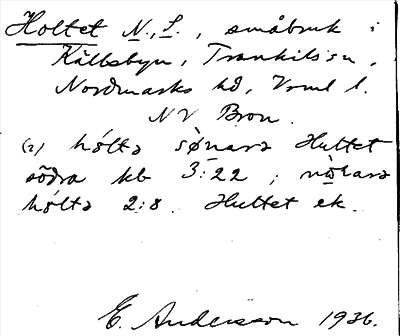 Holtet N., S., småbruk i
Källsbyn, Trankils sn,
Nordmarks hd, Vrml l.
NV Bron.
(2) hólta sø̀nara Hultet
södra kb 3:22; nò̤ɽara
hólta 2:8. Hultet ek.
E. Andersson 1936.